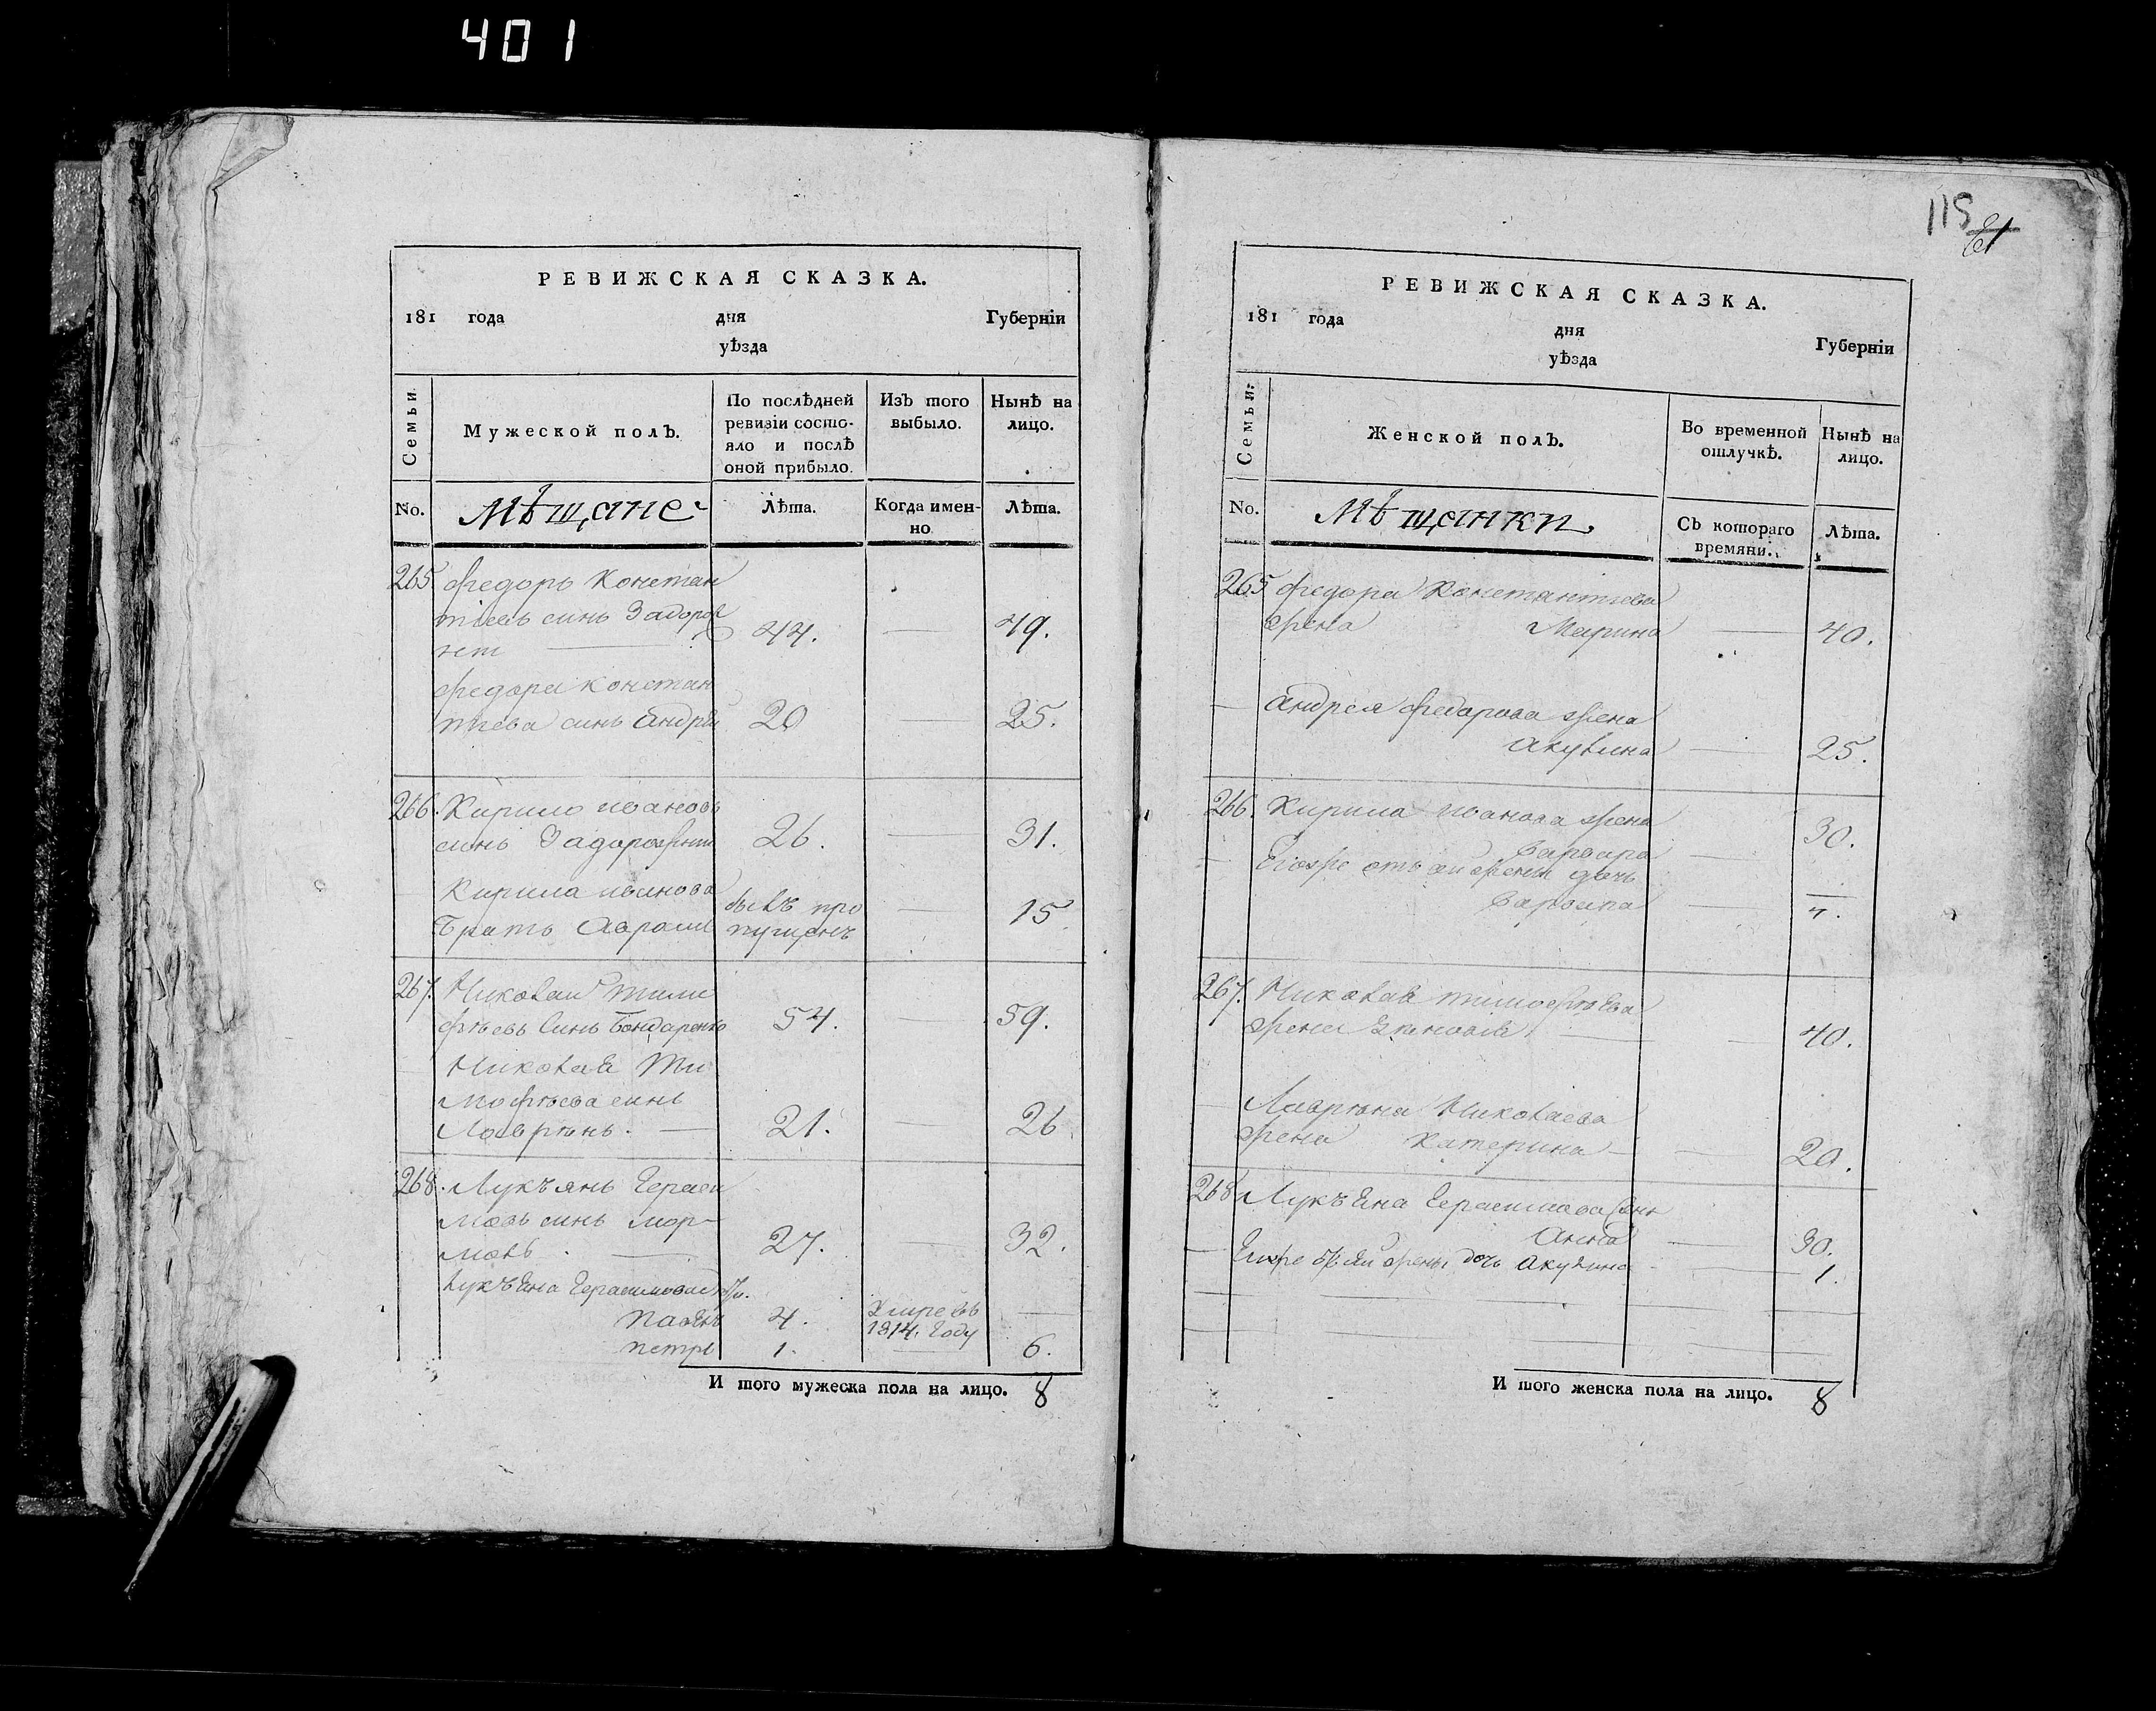 401
РЕВИЖСКАЯ СКАЗКА.
181 года дня Губерніи
уѣзда
Семьи
Мужеской полъ.
По послѣдней ревизіи состо-
яло и послѣ оной прибыло.
Изъ того выбыло.
Нынѣ на лицо.
No.
Мѣщане
Лѣта.
Когда имен-
но
Лѣта.
265 Федоръ Констан
тіевъ синъ
44. 49.
Федора Констан
тиева синъ Андрей 20 25.
266. Кирило Ивановъ
синъ Задорожни 26. 31.
Кирила Иванова
братъ бывъ про
пущенъ 15
267. Николай Тимо
фѣевъ синъ Бондаренко 54. 59.
Николая Ти
мофѣева синъ
Лаврѣнъ. 21. 26
268. Лукъянъ Гераси
мовъ синъ
27. 32.
Лукъяна Герасимова
Павелъ 4. Умре въ
1814. Году
Петръ 1. 6.
И того мужеска пола на лицо. 8
115
61
РЕВИЖСКАЯ СКАЗКА.
181 года дня Губерніи
уѣзда
Семьи:
Женской полъ.
Во временной отлучкѣ.
Нынѣ на лицо.
No.
Мѣщанки.
Съ котораго времяни.
Лѣта.
265 Федора Константиева
жена Марина 40.
Андрея Федорова жена
Акулина 25.
266. Кирила Иванова жена
Варвара 30.
Егожъ отъ ей жены дочь
Варвара 4.
267. Николая Тимофѣева
жена 40.
Лаврѣна Николаева
жена Катерина 20.
268 Лукъяна Герасимова жена
Анна 30.
жены дочь Акулина 1.
И того женска пола на лицо. 8